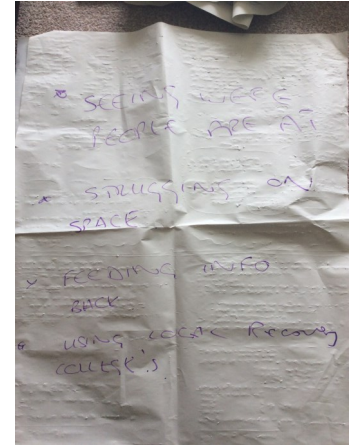 * SEEING WERE
PEOPLE ARE AT
* STRUGGING ON
SPACE
* FEEDING INFO
BACK
* USING Recovery
COLLEGE'S